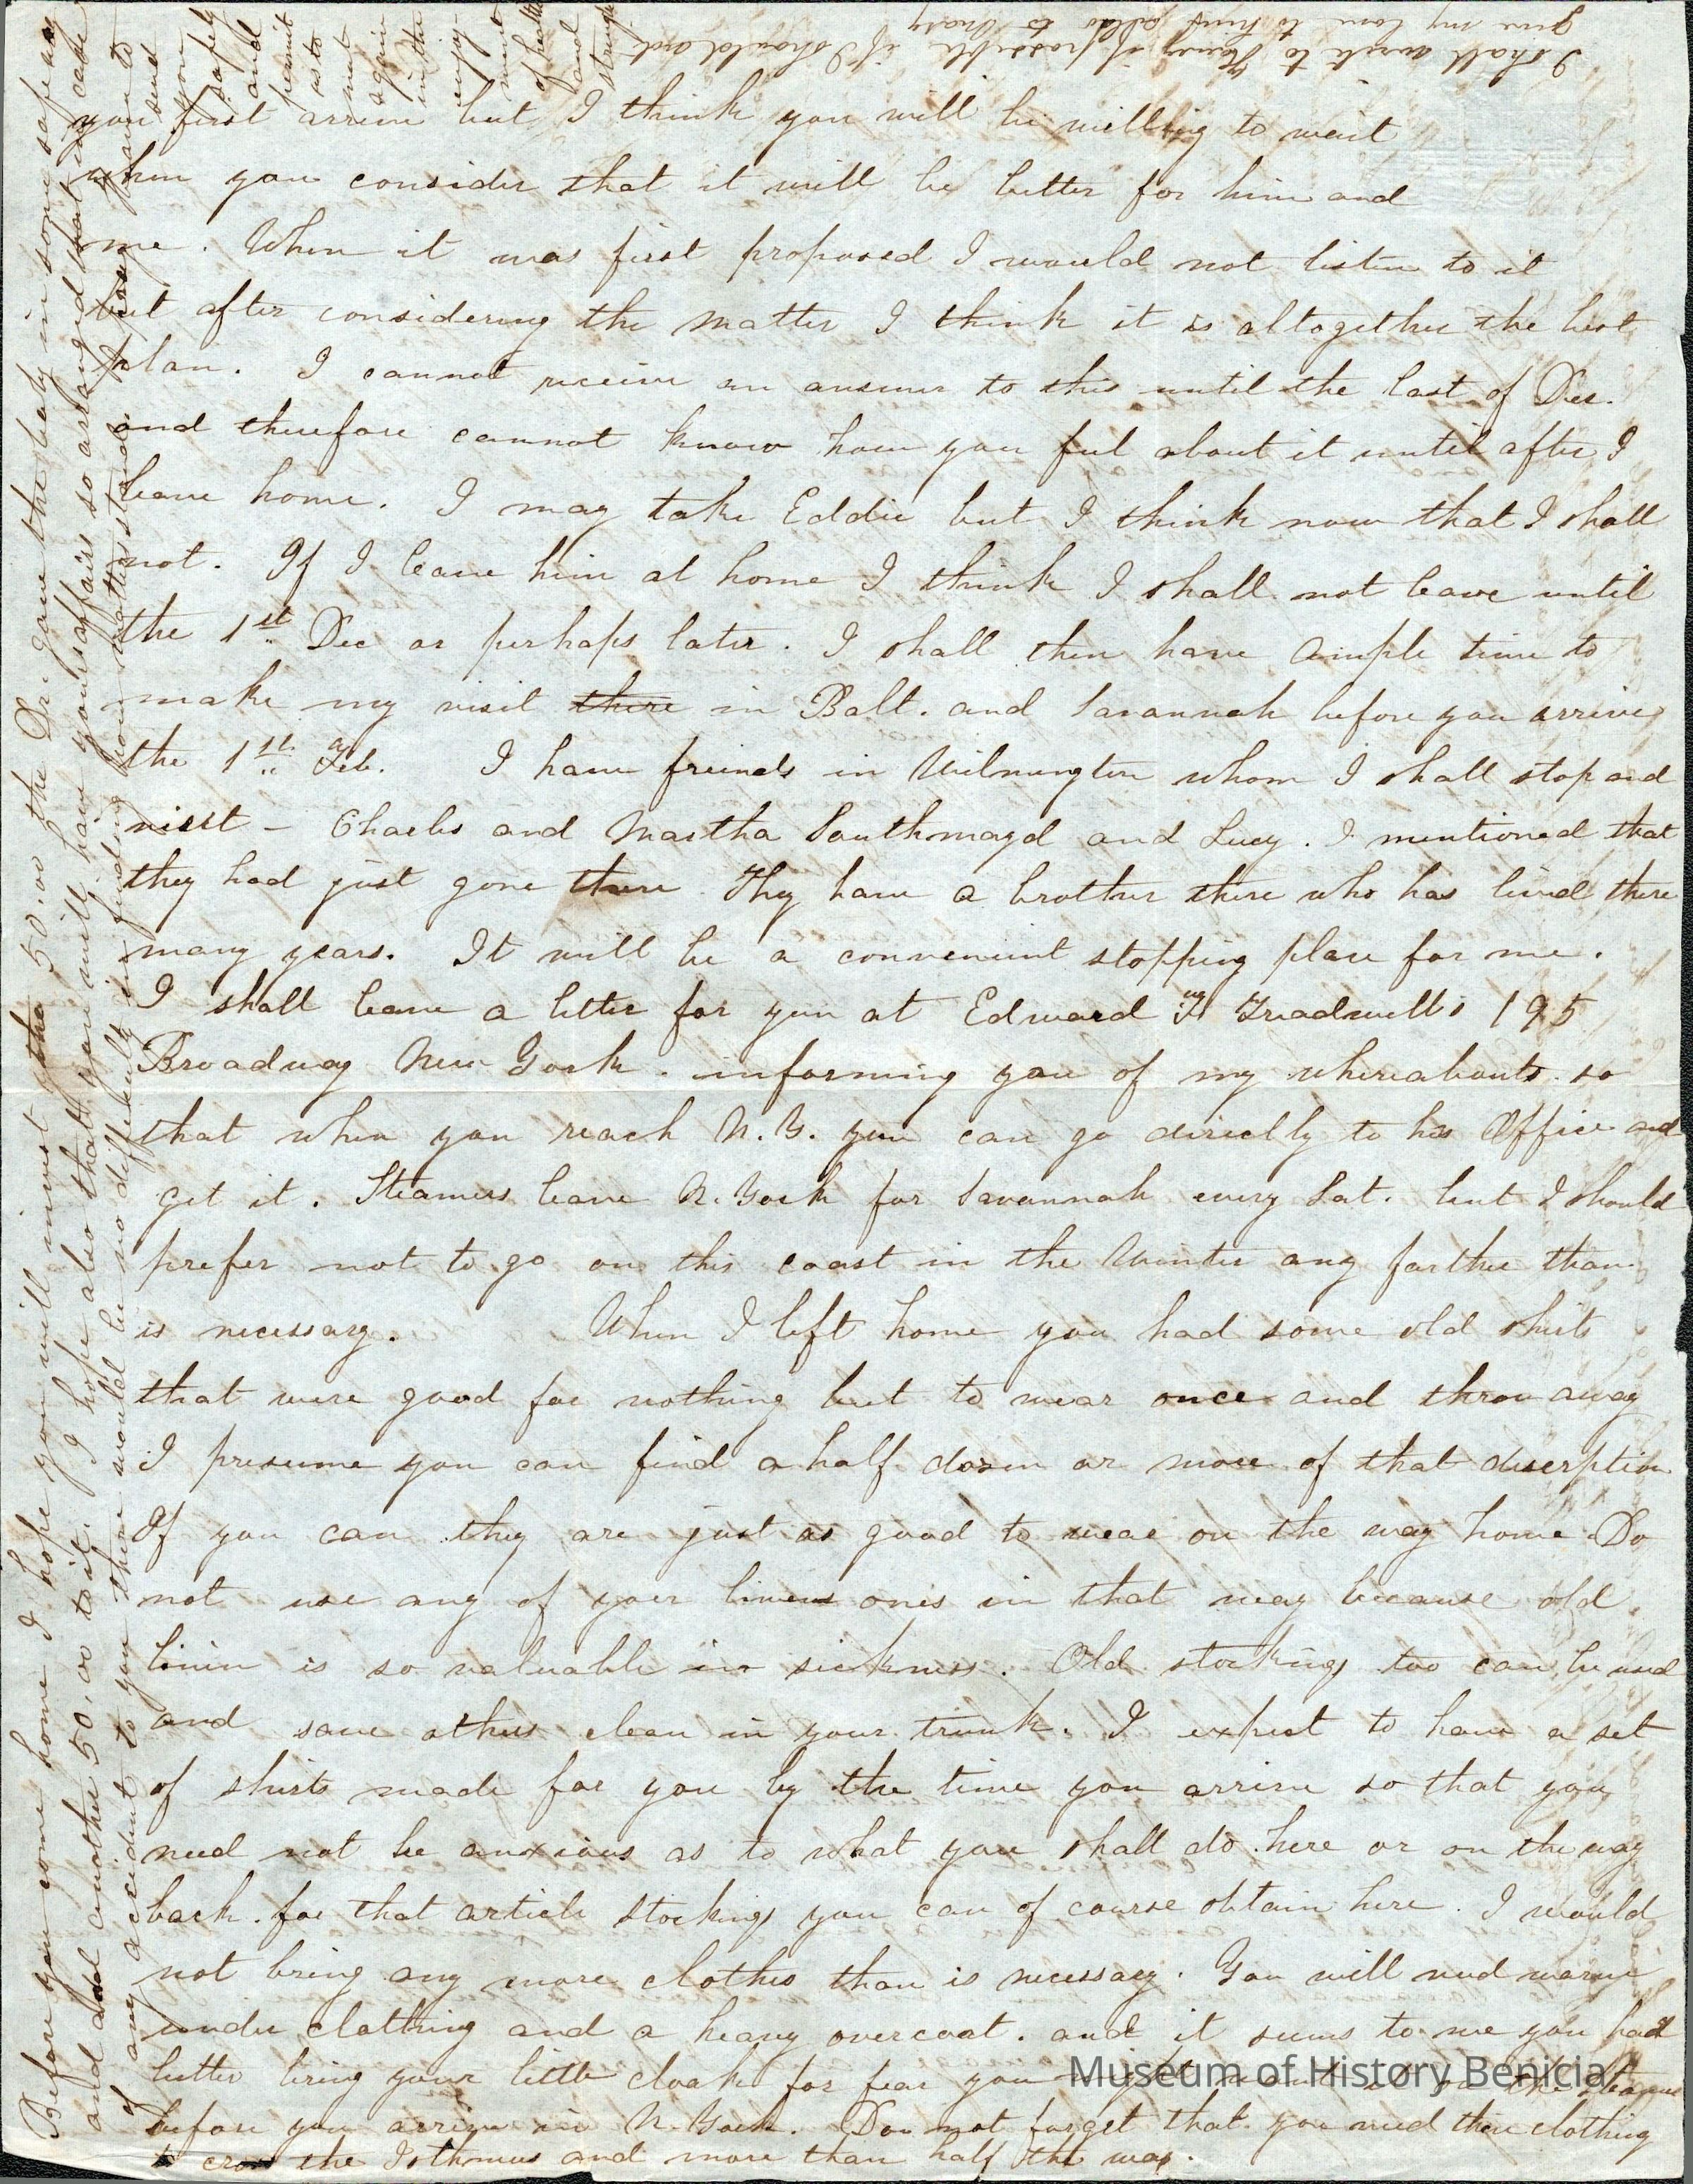 you first arrive but I think you will be willing to wait
when you consider that it will be better for him and
me. When it was first proposed I would not listen to it
but after considering the matter I think it is altogether the best
plan. I cannot receive an answer to this until the last of Dec.
and therefore cannot know how you feel about it until after I
leave home. I may take Eddie but I think now that I shall
not. If I leave him at home I think I shall not leave until
the 1st Dec or perhaps later. I shall then have ample time to
make my visit there in Balt. and Savannah before you arrive
the 1st Feb. I have freinds in Wilmington whom I shall stop and
visit - Charles and Martha Southmayd and Lucy. I mentioned that
they had just gone there They have a brother there who has lived there
many years. It will be a convenient stopping place for me.
I shall leave a letter for you at Edward Treadwell's 195
Broadway New York. informing you of my whereabouts so
that when you reach N.Y. you can go directly to his Office and
get it. Steamers leave N. York for Savannah every Sat. but I should
prefer not to go on this coast in the Winter any farther than
is necessary. When I left home you had some old shirts
that were good for nothing but to wear once and throw away
I presume you can find a half dozen or more of that discrption
If you can they are just as good to wear on the way home Do
not use any of your linen ones in that way because old
linin is so valuable in sickness. Old stockings too can be used
and save others clean in your trunk. I expect to have a set
of shirts made for you by the time you arrive so that you
need not be anxious as to what you shall do here or on the way
back. for that article Stockings you can of course obtain here. I would
not bring any more clothes than is necessary. You will need warm
under clothing and a heavy overcoat. and it seems to me you had
better bring your little cloak for fear you on the steamer
before you arrive in N. York. Do not forget that you need thin clothing
to cross the Isthmus and more than half the way.
Before you come home I hope you will invest the 50.00 the Dr. gave the baby in some safe way
and add another 50.00 to it. I hope also that you will have your affairs so arranged that in case
of any accident to you there would be no difficulty in finding how matters stand.
send
you
safely
and
permit
us to
meet
again
in the
enjoy
ment
of health
and
strength
I shall write to Henry if possible if I should not
give my love to him also to Mary
Museum of History Benicia